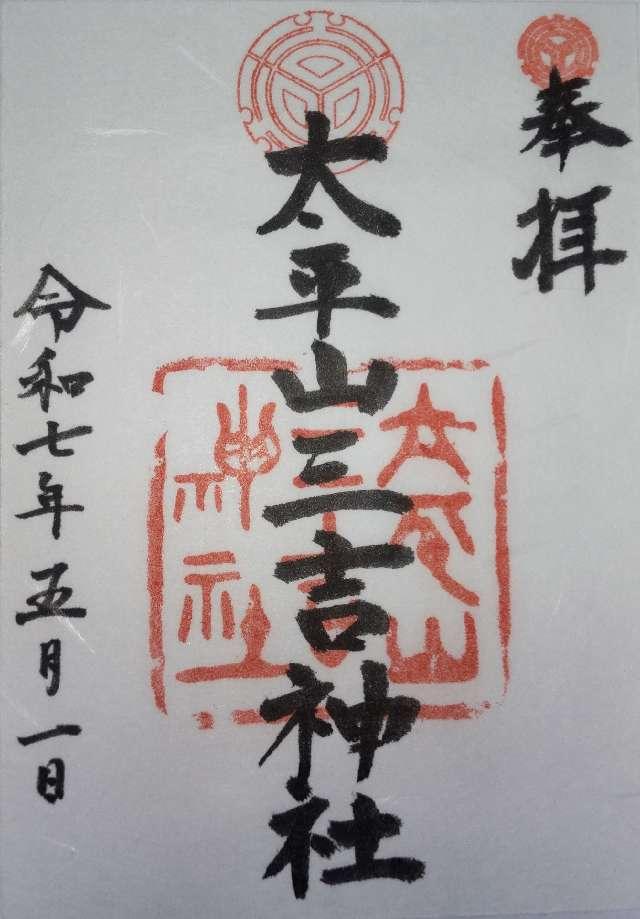 奉拝
太平山三吉神社
太平山
三吉
神社
令和七年五月一日